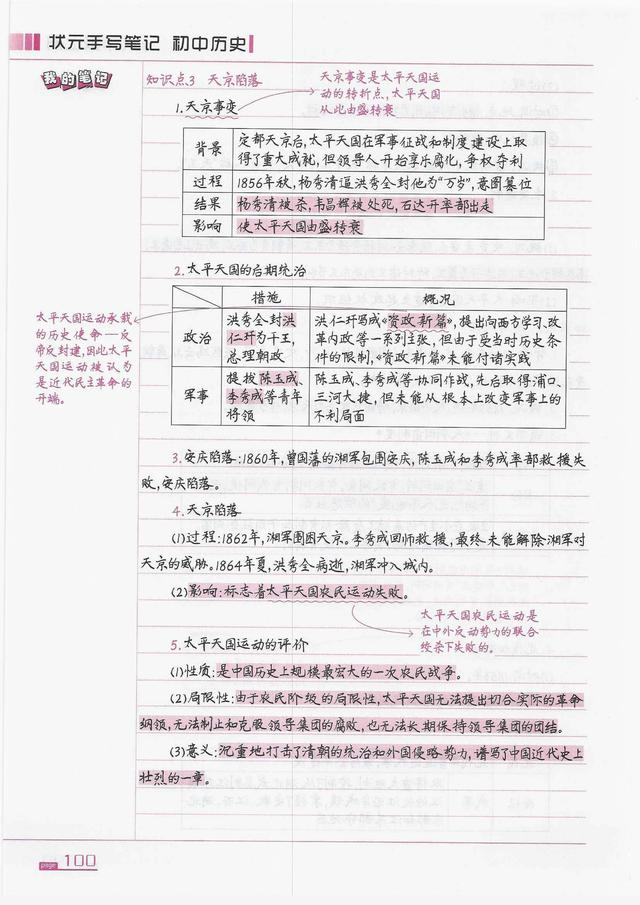 状元手写笔记 初中历史
我的笔记
知识点3 天京陷落
天京事变是太平天国运
动的转折点,太平天国
从此由盛转衰
1.天京事变
背景
定都天京后,太平天国在军事征战和制度建设上取
得了重大成就,但领导人开始享乐腐化,争权夺利
过程
1856年秋,杨秀清逼洪秀全封他为“万岁”,意图篡位
结果
杨秀清被杀,韦昌辉被处死,石达开率部出走
影响
使太平天国由盛转衰
2.太平天国的后期统治
措施
概况
政治
洪秀全封洪
仁玕为干王,
总理朝政
洪仁玕写成《资政新篇》,提出向西方学习、改
革内政等一系列主张,但由于受当时历史条
件的限制,《资政新篇》未能付诸实践
军事
提拔陈玉成、
李秀成等青年
将领
陈玉成、李秀成等协同作战,先后取得浦口、
三河大捷,但未能从根本上改变军事上的
不利局面
太平天国运动承载
的历史使命—反
帝反封建,因此太平
天国运动被认为
是近代民主革命的
开端。
3.安庆陷落:1860年,曾国藩的湘军包围安庆,陈玉成和李秀成率部救援失
败,安庆陷落。
4.天京陷落
(1)过程:1862年,湘军围困天京。李秀成回师救援,最终未能解除湘军对
天京的威胁。1864年夏,洪秀全病逝,湘军冲入城内。
(2)影响:标志着太平天国农民运动失败。
太平天国农民运动是
在中外反动势力的联合
绞杀下失败的。
5.太平天国运动的评价
(1)性质:是中国历史上规模最宏大的一次农民战争。
(2)局限性:由于农民阶级的局限性,太平天国无法提出切合实际的革命
纲领,无法制止和克服领导集团的腐败,也无法长期保持领导集团的团结。
(3)意义:沉重地打击了清朝的统治和外国侵略势力,谱写了中国近代史上
壮烈的一章。
page 100